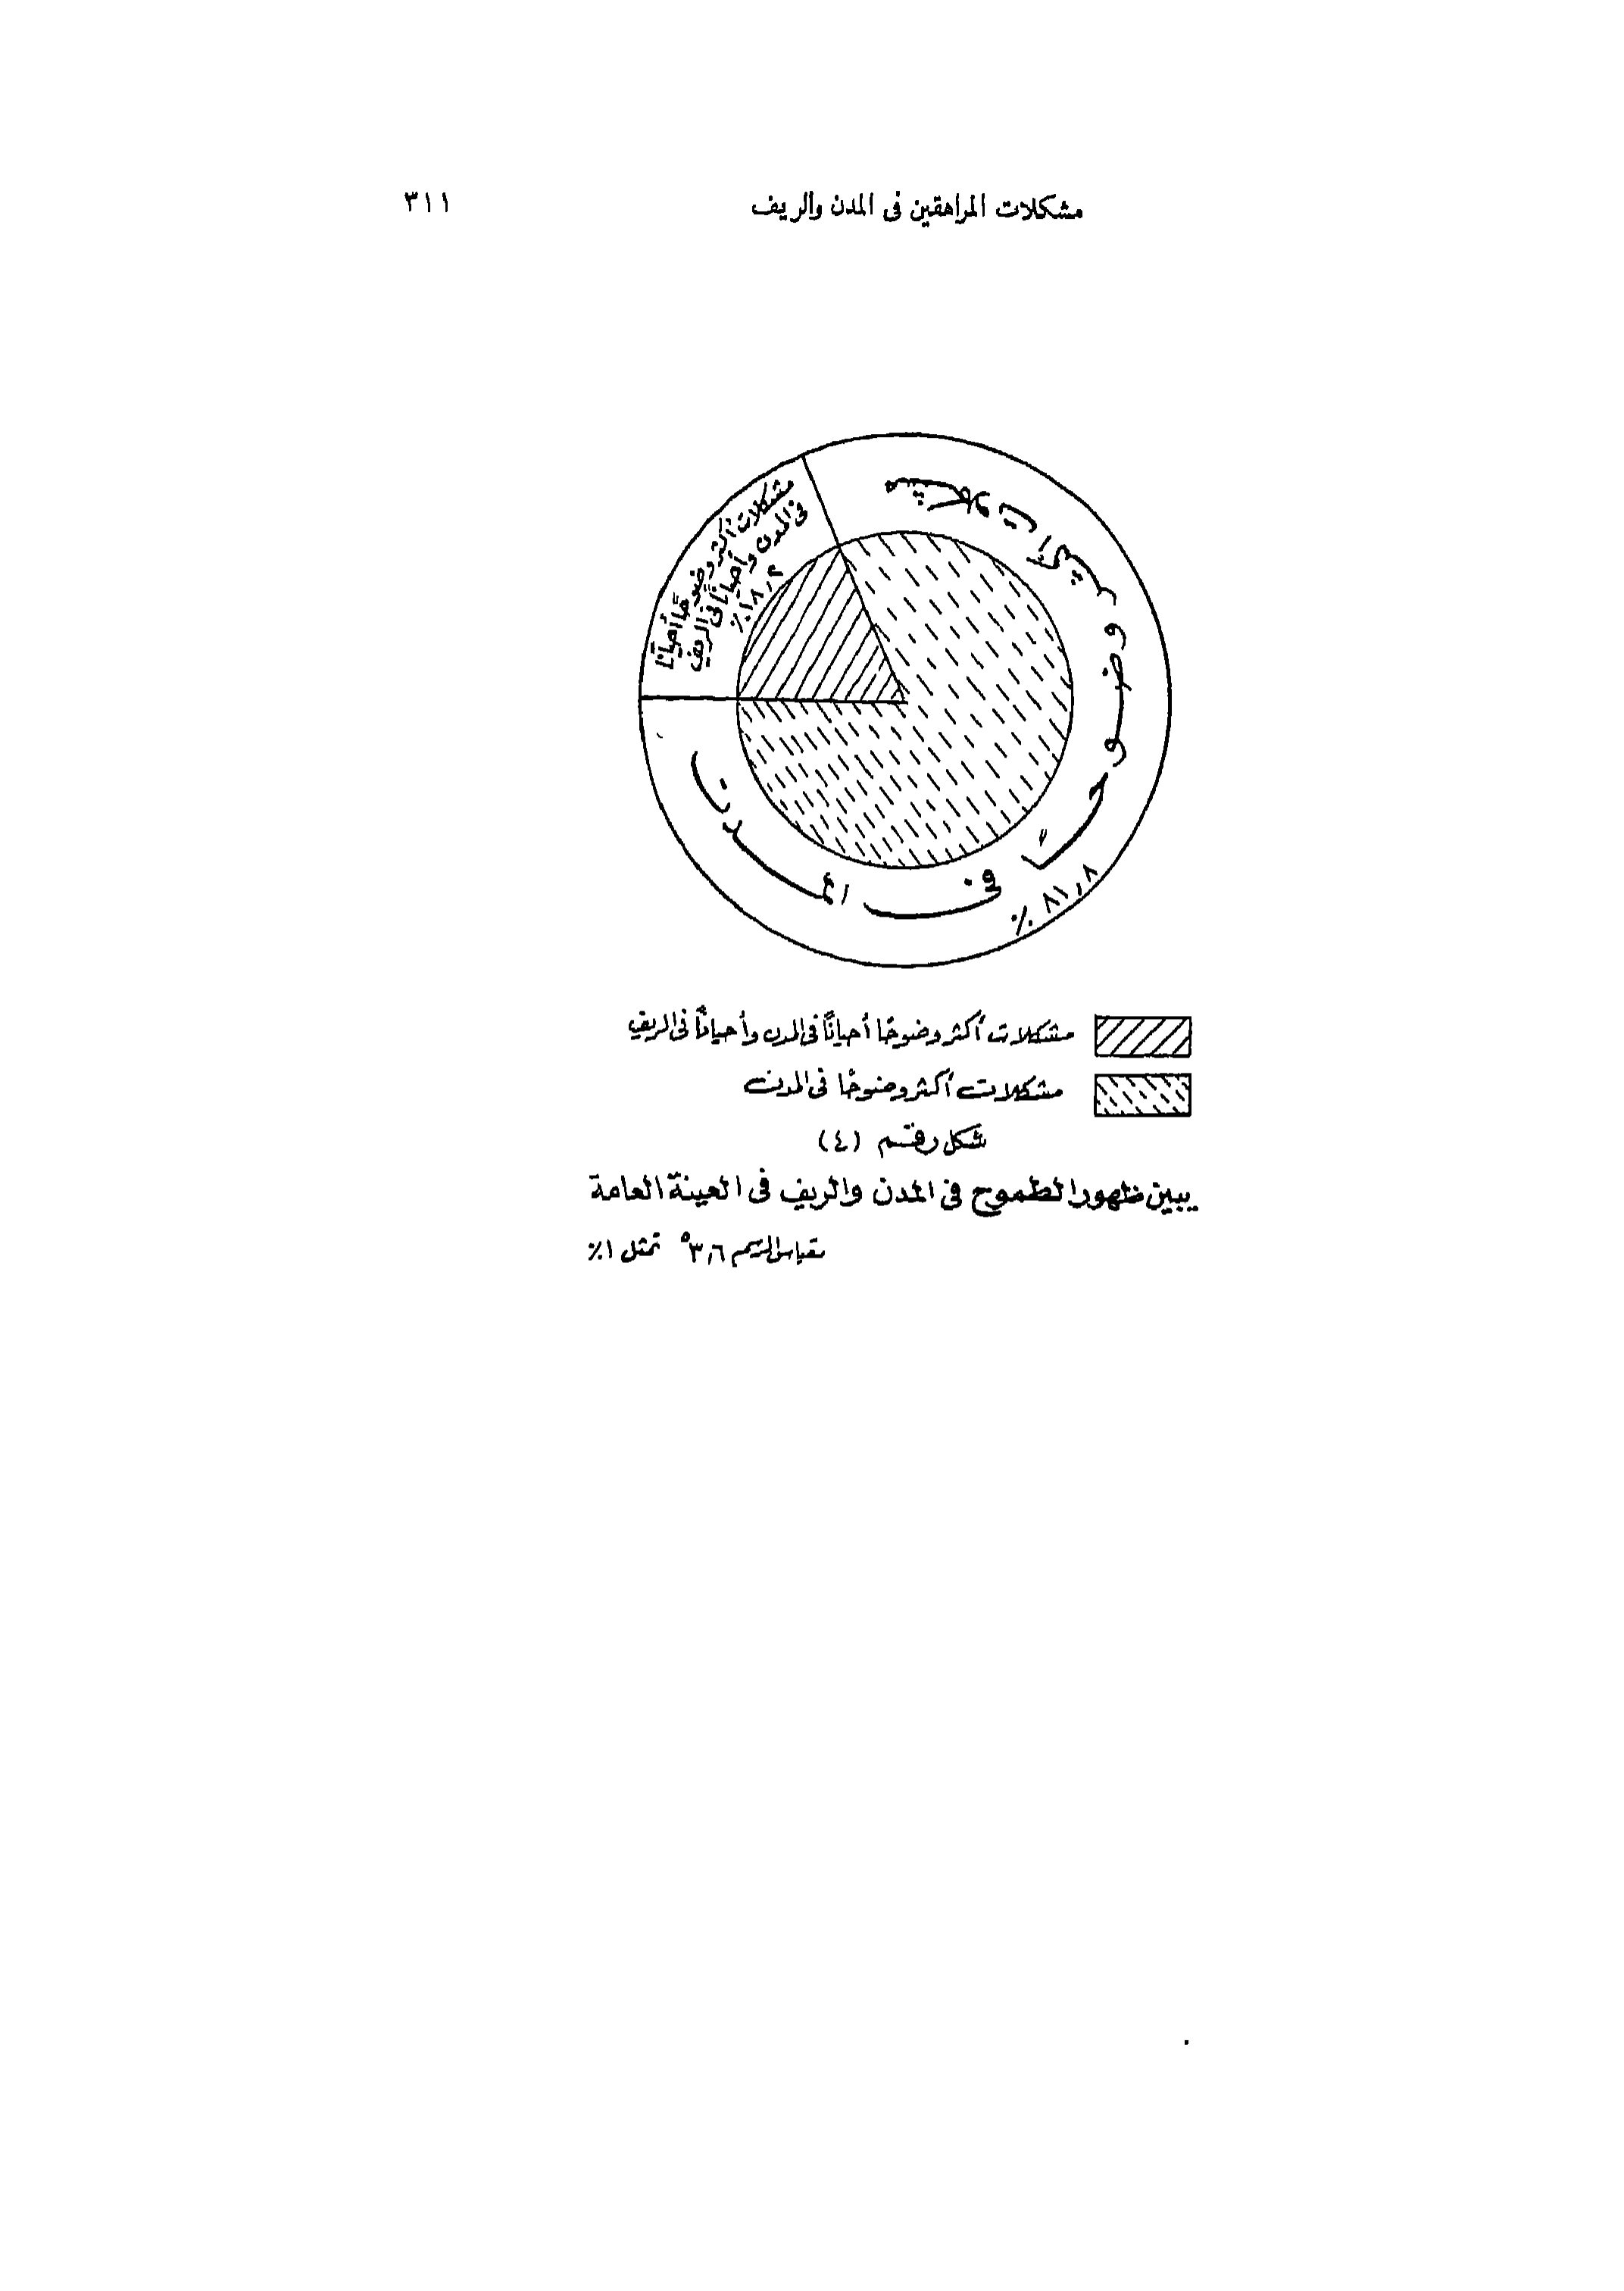 مشكلات المراهقين فى المدن والريف
٣١١
مشكلات أكثر وضوحًا أحيانًا
فى المدن وأحيانًا فى الريف
١٨٫٢٪
مشكلات أكثر وضوحًا فى المدن
٨١٫٨٪
مشكلات أكثر وضوحًا أحيانًا فى المدن وأحيانًا فى الريف
مشكلات أكثر وضوحًا فى المدن
شكل رقم (٤)
يبين ظهور الطموح فى المدن والريف فى العينة العامة
مقياس الرسم ٣٫٦° تمثل ١٪